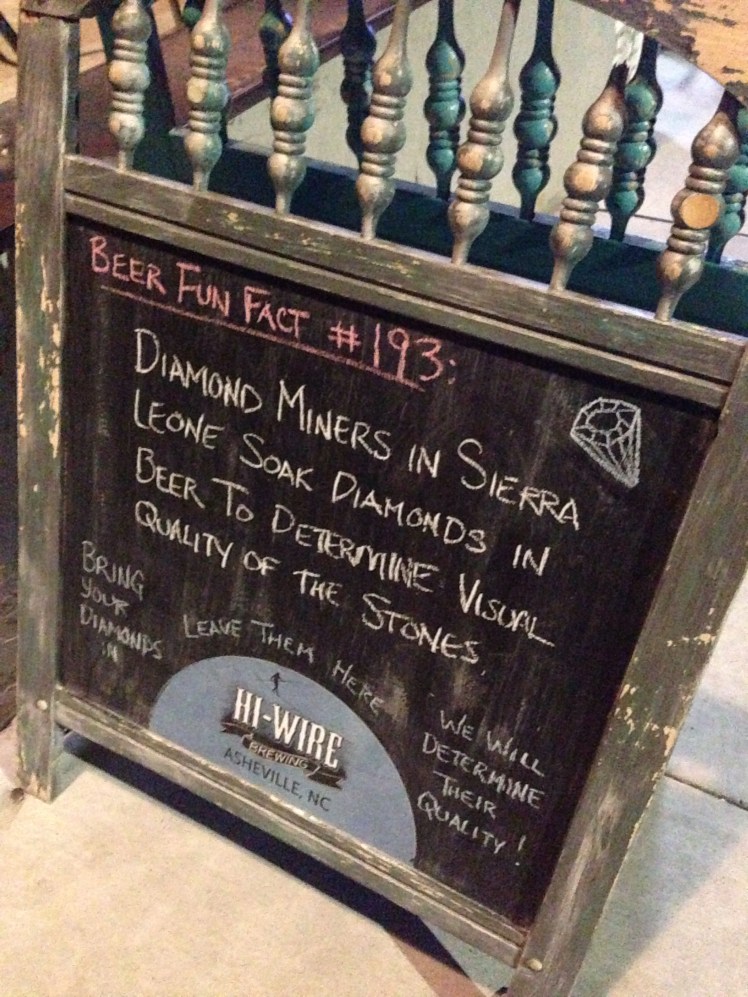 BEER FUN FACT #193:
DIAMOND MINERS IN SIERRA
LEONE SOAK DIAMONDS IN
BEER TO DETERMINE VISUAL
QUALITY OF THE STONES.
BRING
YOUR
DIAMONDS
IN
LEAVE THEM HERE
WE WILL
DETERMINE
THEIR
QUALITY!
HI-WIRE
BREWING
ASHEVILLE, NC